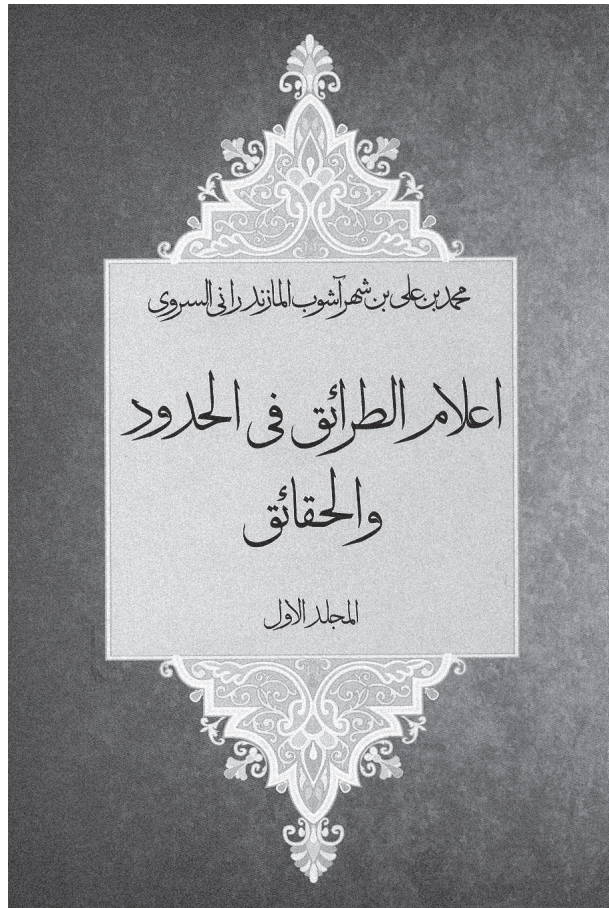 محمد بن علی بن شهرآشوب المازندرانی السروی
اعلام الطرائق فی الحدود
والحقائق
المجلد الاول